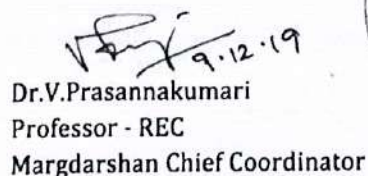 9.12.19
Dr.V.Prasannakumari
Professor - REC
Margdarshan Chief Coordinator